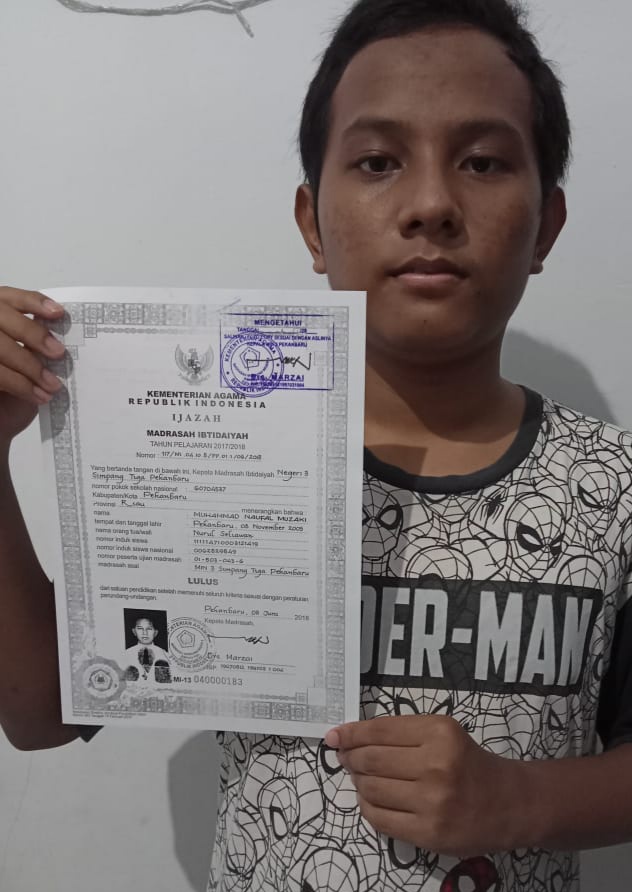 MENGETAHUI
TANGGAL
SALINAN / FOTO COPY SESUAI DENGAN ASLINYA
KEPALA MIN 3 PEKANBARU
Drs. MARZAI
KEMENTERIAN AGAMA
REPUBLIK INDONESIA
IJAZAH
MADRASAH IBTIDAIYAH
TAHUN PELAJARAN 2017/2018
Nomor :
Yang bertanda tangan di bawah ini, Kepala Madrasah Ibtidaiyah Negeri 3
Simpang Tiga Pekanbaru
nomor pokok sekolah nasional : 60704537
Kabupaten/Kota Pekanbaru
Provinsi Riau menerangkan bahwa :
nama : MUHAMMAD NAUFAL MUZAKI
tempat dan tanggal lahir : Pekanbaru, 08 November 2005
nama orang tua/wali : Nurul Setiawan
nomor induk siswa :
nomor induk siswa nasional :
nomor peserta ujian madrasah :
madrasah asal : MIN 3 Simpang Tiga Pekanbaru
LULUS
dari satuan pendidikan setelah memenuhi seluruh kriteria sesuai dengan peraturan
perundang-undangan.
Pekanbaru, 08 Juni 2018
Kepala Madrasah,
Drs Marzai
NIP
MI-13 040000183
DER-MAN